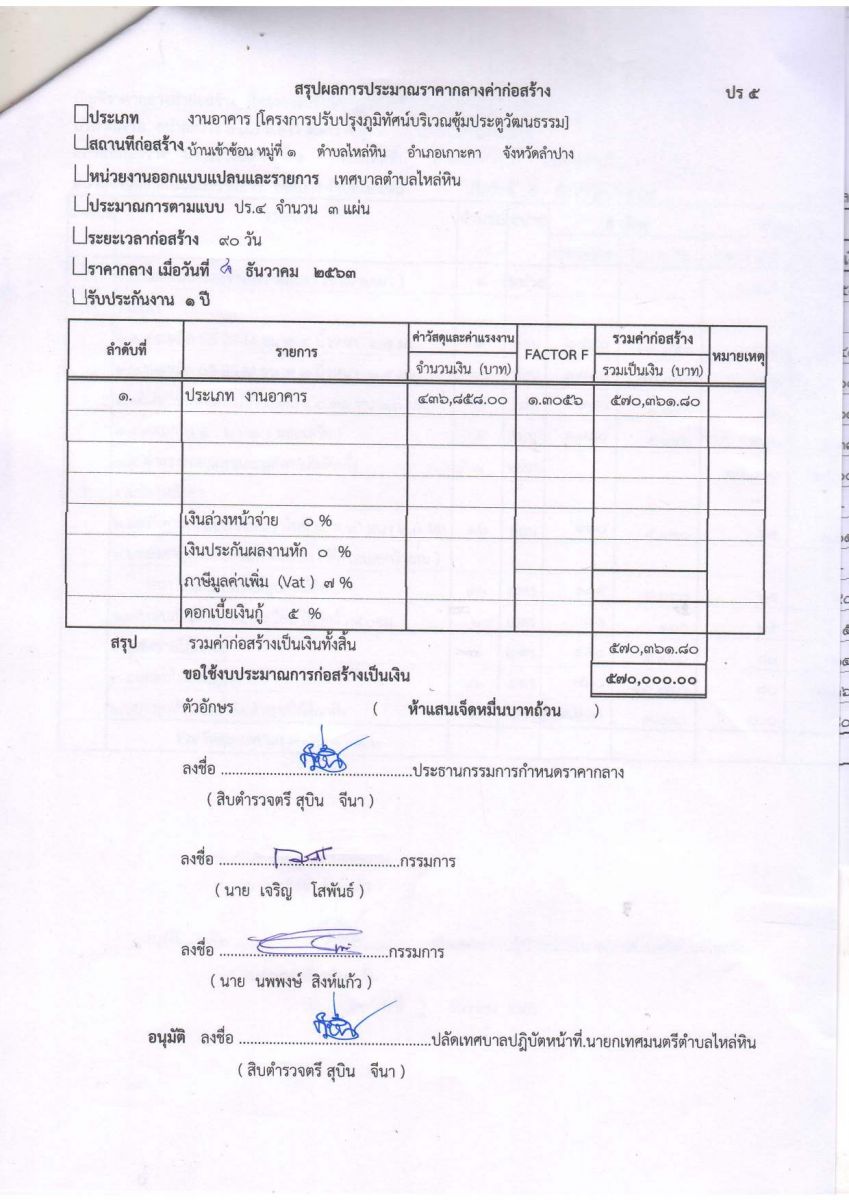 สรุปผลการประมาณราคากลางค่าก่อสร้าง ปร ๕
ประเภท งานอาคาร [โครงการปรับปรุงภูมิทัศน์บริเวณซุ้มประตูวัฒนธรรม]
สถานที่ก่อสร้าง บ้านเข้าซ้อน หมู่ที่ ๑ ตำบลไหล่หิน อำเภอเกาะคา จังหวัดลำปาง
หน่วยงานออกแบบแปลนและรายการ เทศบาลตำบลไหล่หิน
ประมาณการตามแบบ ปร.๔ จำนวน ๓ แผ่น
ระยะเวลาก่อสร้าง ๙๐ วัน
ราคากลาง เมื่อวันที่ ธันวาคม ๒๕๖๓
รับประกันงาน ๑ ปี
ลำดับที่ รายการ ค่าวัสดุและค่าแรงงาน FACTOR F รวมค่าก่อสร้าง หมายเหตุ
จำนวนเงิน (บาท) รวมเป็นเงิน (บาท)
๑. ประเภท งานอาคาร ๔๓๖,๘๕๘.๐๐ ๑.๓๐๕๖ ๕๗๐,๓๖๑.๘๐
เงินล่วงหน้าจ่าย ๐ %
เงินประกันผลงานหัก ๐ %
ภาษีมูลค่าเพิ่ม (Vat ) ๗ %
ดอกเบี้ยเงินกู้ ๕ %
สรุป รวมค่าก่อสร้างเป็นเงินทั้งสิ้น ๕๗๐,๓๖๑.๘๐
ขอใช้งบประมาณการก่อสร้างเป็นเงิน ๕๗๐,๐๐๐.๐๐
ตัวอักษร ( ห้าแสนเจ็ดหมื่นบาทถ้วน )
ลงชื่อ ..........................................ประธานกรรมการกำหนดราคากลาง
( สิบตำรวจตรี สุบิน จีนา )
ลงชื่อ ........................................กรรมการ
( นาย เจริญ โสพันธ์ )
ลงชื่อ .....................................กรรมการ
( นาย นพพงษ์ สิงห์แก้ว )
อนุมัติ ลงชื่อ ..........................................ปลัดเทศบาลปฏิบัตหน้าที่.นายกเทศมนตรีตำบลไหล่หิน
( สิบตำรวจตรี สุบิน จีนา )